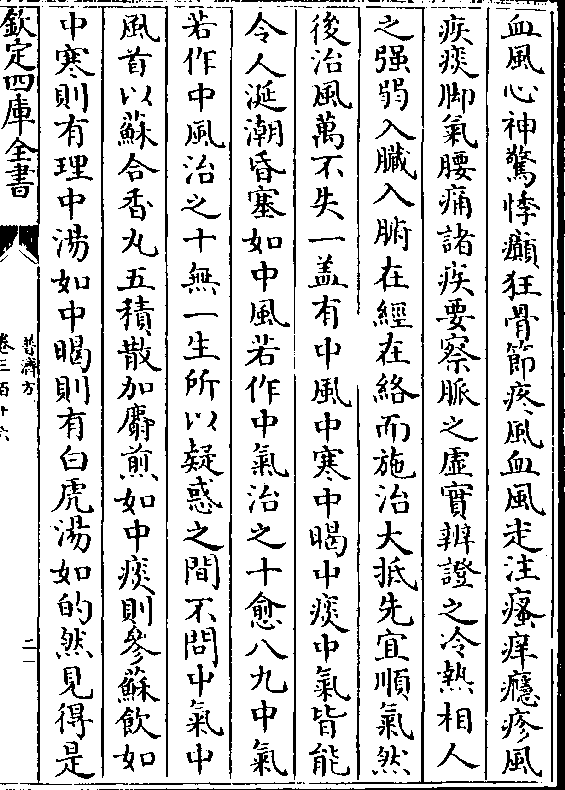 血風心神驚悸癲狂骨節疼風血風走注瘙痒癮疹風
疾痰脚氣腰痛諸疾要察脈之虛實辨證之冷熱相人
之强弱入臟入腑在經在絡而施治大抵先宜順氣然
後治風萬不失一盖有中風中寒中暍中痰中氣皆能
令人涎潮昏塞如中風若作中氣治之十愈八九中氣
若作中風治之十無一生所以疑惑之間不問中氣中
風首以蘇合香丸五積散加麝煎如中痰則參蘇飲如
中寒則有理中湯如中暍則有白虎湯如的然見得是
欽定四庫全書
普濟方
卷三百十六
二